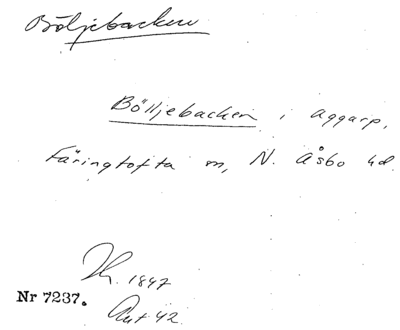 Böljebacken
Bölljebacken i Aggarp,
Färingtofta sn, N. Åsbo hd.
1847
Nr 7237.
Ant 42